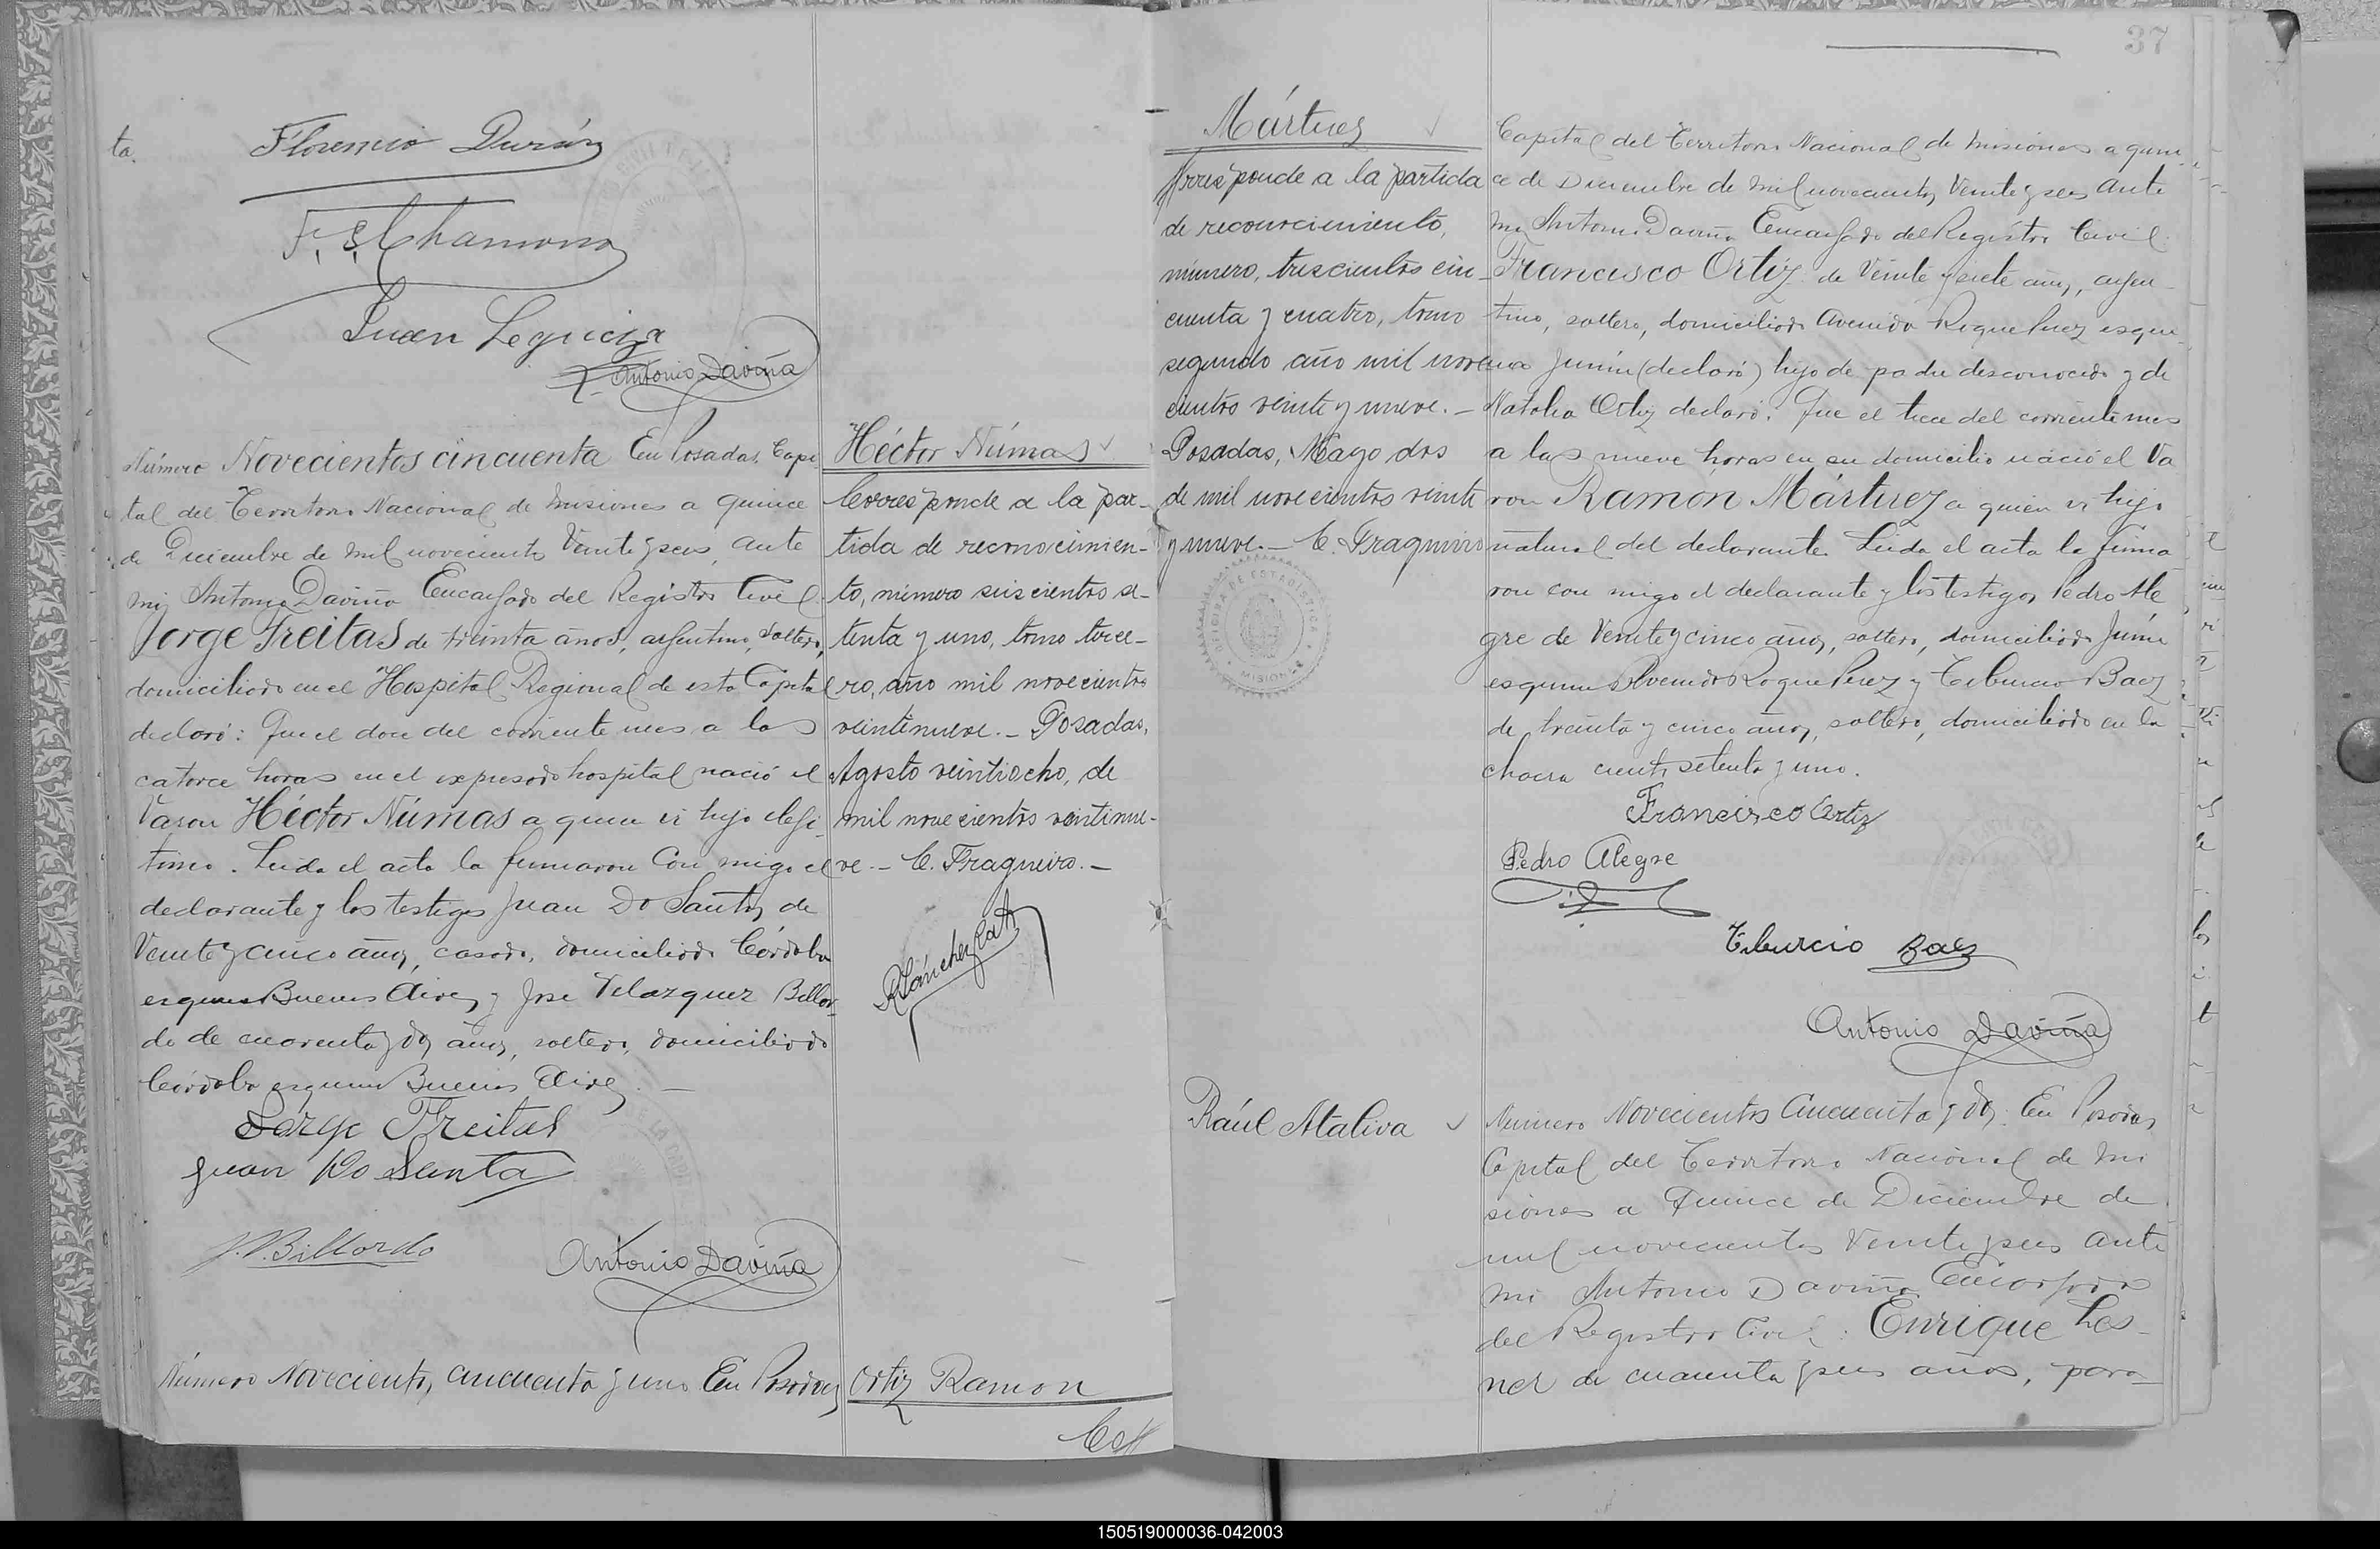 37
ta.
Florencio Durán
F. S. Chamorro
Juan Leguiza
Antonio Daviña
Número Novecientos cincuenta En Posadas, Capi
tal del Territorio Nacional de Misiones a quince
de Diciembre de mil novecientos Veinte y seis, ante
mi Antonio Daviña Encargado del Registro Civil
Jorge Freitas de treinta años, argentino, soltero,
domiciliado en el Hospital Regional de esta Capital
declaró: Que el doce del corriente mes a las
catorce horas en el expresado hospital nació el
Varon Héctor Númas a quien es hijo ilegi
timo. Leida el acta la firmaron con migo el
declarante y los testigos Juan Do Santos de
Veinte y cinco años, casado, domiciliado Córdoba
esquina Buenos Aires y Jose Velazquez Billor
do de cuarenta y dos años, soltero, domiciliado
Córdoba esquina Buenos Aires. —
Jorge Freitas
Juan Do Santo
J. V. Billordo
Antonio Daviña
Número Novecientos cincuenta y uno En Posadas
Héctor Númas
Corresponde a la par-
tida de reconocimien-
to, número seiscientos se-
tenta y uno, tomo terce-
ro, año mil novecientos
veintinueve. - Posadas,
Agosto veintiocho, de
mil novecientos veintinue-
ve. - C. Fragueiro. -
R Sánchez
Ortiz Ramon
Mártires
Corresponde a la partida
de reconocimiento,
número, trescientos cin-
cuenta y cuatro, tomo
segundo año mil nove
cientos veinte y nueve. -
Posadas, Mayo dos
de mil novecientos veinte
y nueve. - C. Fragueiro
OFICINA DE ESTADISTICA
MISIONES
Capital del Territorio Nacional de Misiones a quin
ce de Diciembre de mil novecientos Veinte y seis ante
mi Antonio Daviña Encargado del Registro Civil:
Francisco Ortiz de Veinte y siete años, argen
tino, soltero, domiciliado Avenida Roque Perez esqui
na Junin (declaró) hijo de padre desconocido y de
Natalia Ortiz declaró: Que el trece del corriente mes
a las nueve horas en su domicilio nació el Va
ron Ramón Mártirez a quien es hijo
natural del declarante. Leida el acta la firma
ron con migo el declarante y los testigos Pedro Ale
gre de Veinte y cinco años, soltero, domiciliado Junin
esquina Avenida Roque Perez y Tiburcio Baez
de treinta y cinco años, soltero, domiciliado en la
chacra ciento setenta y uno.
Francisco Ortiz
Pedro Alegre
Tiburcio Baez
Antonio Daviña
Raúl Ataliva
Número Novecientos Cincuenta y dos: En Posadas
Capital del Territorio Nacional de Mi
siones a Quince de Diciembre de
mil novecientos Veinte y seis ante
mi Antonio Daviña Encargado
del Registro Civil: Enrique Les
ner de cuarenta y seis años, para-
150519000036-042003